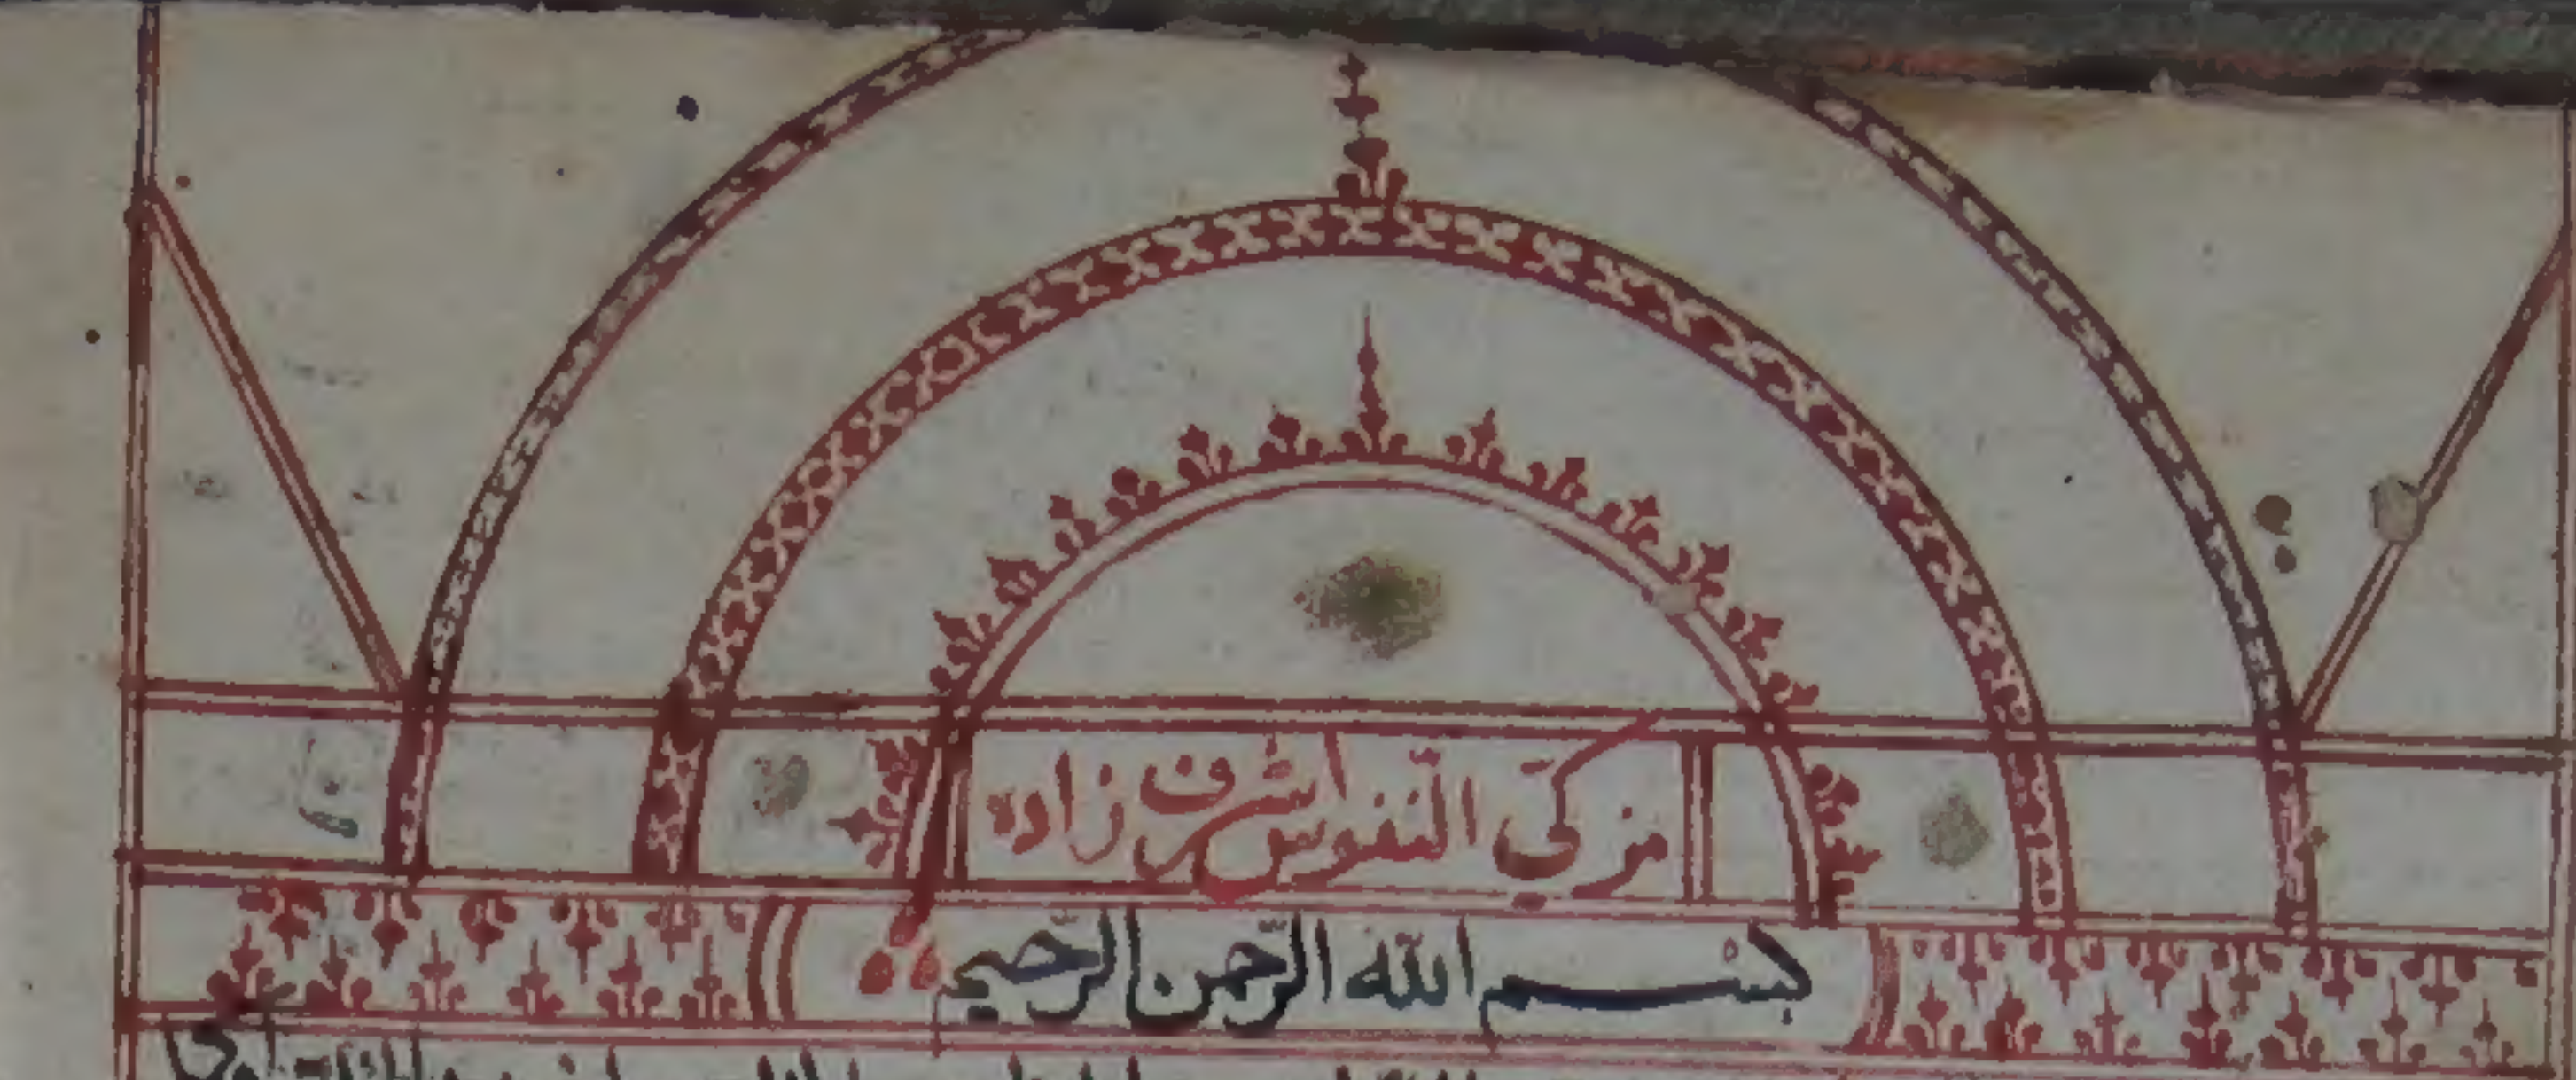 مزكي النّفوس اشرف زاده
بسم الله الرّحمن الرّحيم